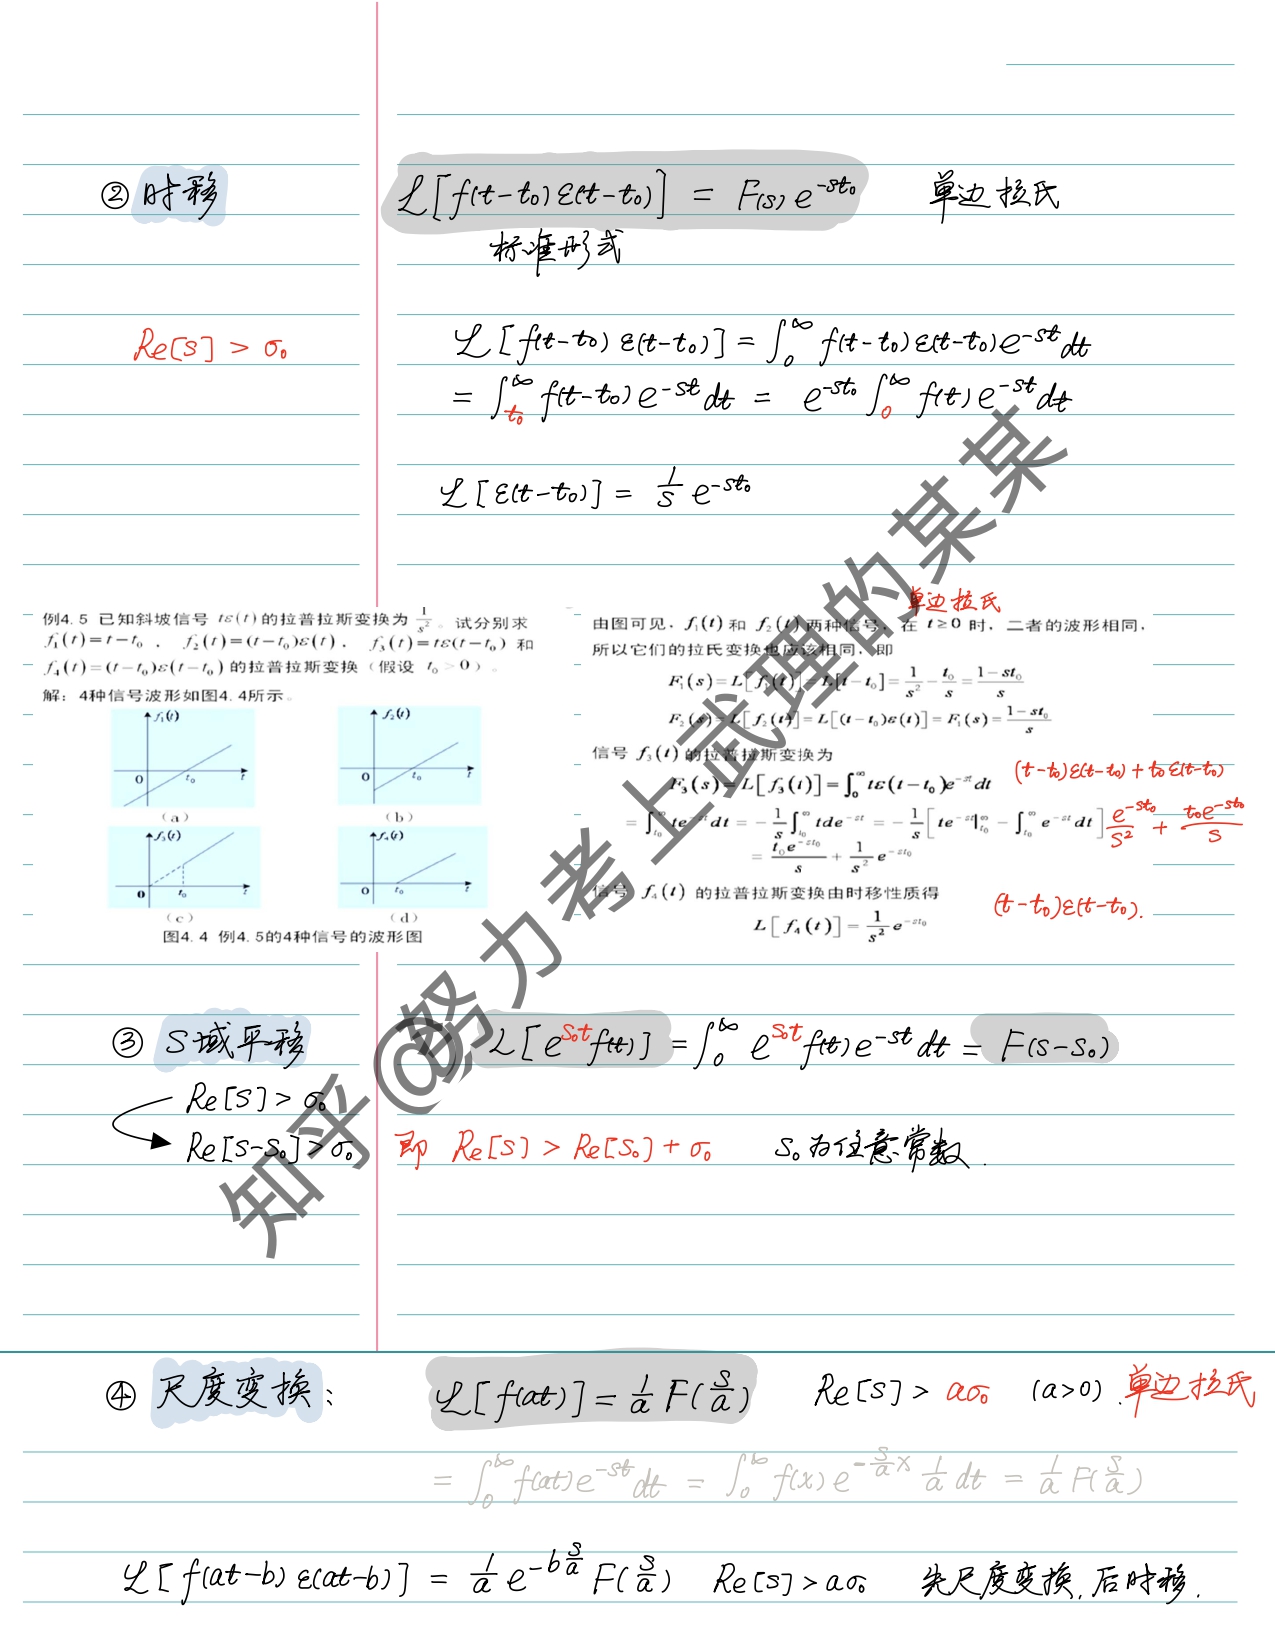 ② 时移 ℒ[f(t-t₀)ε(t-t₀)] = F(s)e^{-st₀} 单边拉氏
标准形式
Re[s] > σ₀ ℒ[f(t-t₀)ε(t-t₀)] = ∫₀^∞ f(t-t₀)ε(t-t₀)e^{-st}dt
= ∫_{t₀}^∞ f(t-t₀)e^{-st}dt = e^{-st₀}∫₀^∞ f(t)e^{-st}dt
ℒ[ε(t-t₀)] = 1/s e^{-st₀}
例4.5 已知斜坡信号 tε(t)的拉普拉斯变换为 1/s²。试分别求
f₁(t)=t-t₀ , f₂(t)=(t-t₀)ε(t), f₃(t)=tε(t-t₀) 和
f₄(t)=(t-t₀)ε(t-t₀) 的拉普拉斯变换（假设 t₀>0）。
解：4种信号波形如图4.4所示。
f₁(t) f₂(t)
0 t₀ t 0 t₀ t
(a) (b)
f₃(t) f₄(t)
0 t₀ t 0 t₀ t
(c) (d)
图4.4 例4.5的4种信号的波形图
单边拉氏
由图可见，f₁(t)和 f₂(t)两种信号，在 t≥0 时，二者的波形相同，
所以它们的拉氏变换也应该相同，即
F₁(s)=L[f₁(t)]=L[t-t₀]=1/s²-t₀/s=(1-st₀)/s
F₂(s)=L[f₂(t)]=L[(t-t₀)ε(t)]=F₁(s)=(1-st₀)/s
信号 f₃(t)的拉普拉斯变换为
F₃(s)=L[f₃(t)]=∫₀^∞ tε(t-t₀)e^{-st}dt (t-t₀)ε(t-t₀)+t₀ε(t-t₀)
=∫_{t₀}^∞ te^{-st}dt=-1/s∫_{t₀}^∞ tde^{-st}=-1/s[te^{-st}|_{t₀}^∞-∫_{t₀}^∞ e^{-st}dt] e^{-st₀}/s² + t₀e^{-st₀}/s
=t₀e^{-st₀}/s+1/s² e^{-st₀}
信号 f₄(t) 的拉普拉斯变换由时移性质得 (t-t₀)ε(t-t₀).
L[f₄(t)]=1/s² e^{-st₀}
③ S域平移 ℒ[e^{s₀t}f(t)] = ∫₀^∞ e^{s₀t}f(t)e^{-st}dt = F(s-s₀)
Re[s] > σ₀
Re[s-s₀] > σ₀ 即 Re[s] > Re[s₀]+σ₀ s₀为任意常数.
④ 尺度变换： ℒ[f(at)] = 1/a F(s/a) Re[s] > aσ₀ (a>0). 单边拉氏
= ∫₀^∞ f(at)e^{-st}dt = ∫₀^∞ f(x)e^{-s/a x} 1/a dt = 1/a F(s/a)
ℒ[f(at-b)ε(at-b)] = 1/a e^{-b s/a} F(s/a) Re[s]>aσ₀ 先尺度变换, 后时移.
知乎@努力考上武理的某某